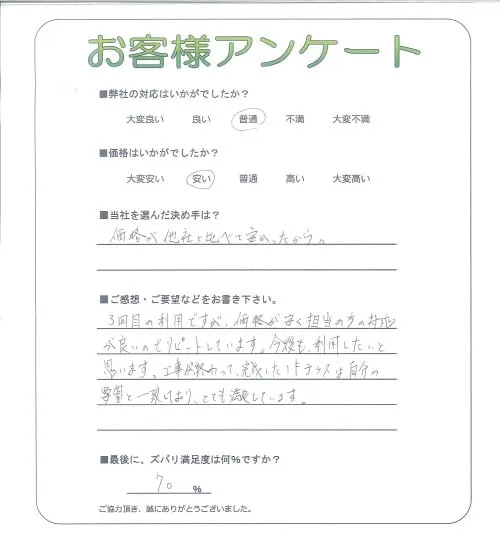 お客様アンケート
■弊社の対応はいかがでしたか？
大変良い 良い 普通 不満 大変不満
■価格はいかがでしたか？
大変安い 安い 普通 高い 大変高い
■当社を選んだ決め手は？
価格が他社と比べて安かったから。
■ご感想・ご要望などをお書き下さい。
3回目の利用ですが、価格が安く担当の方の対応
が良いのでリピートしています。今後も、利用したいと
思います。工事が終わって、完成したテラスは自分の
要望と一致しており、とても満足しています。
■最後に、ズバリ満足度は何%ですか？
70 %
ご協力頂き、誠にありがとうございました。